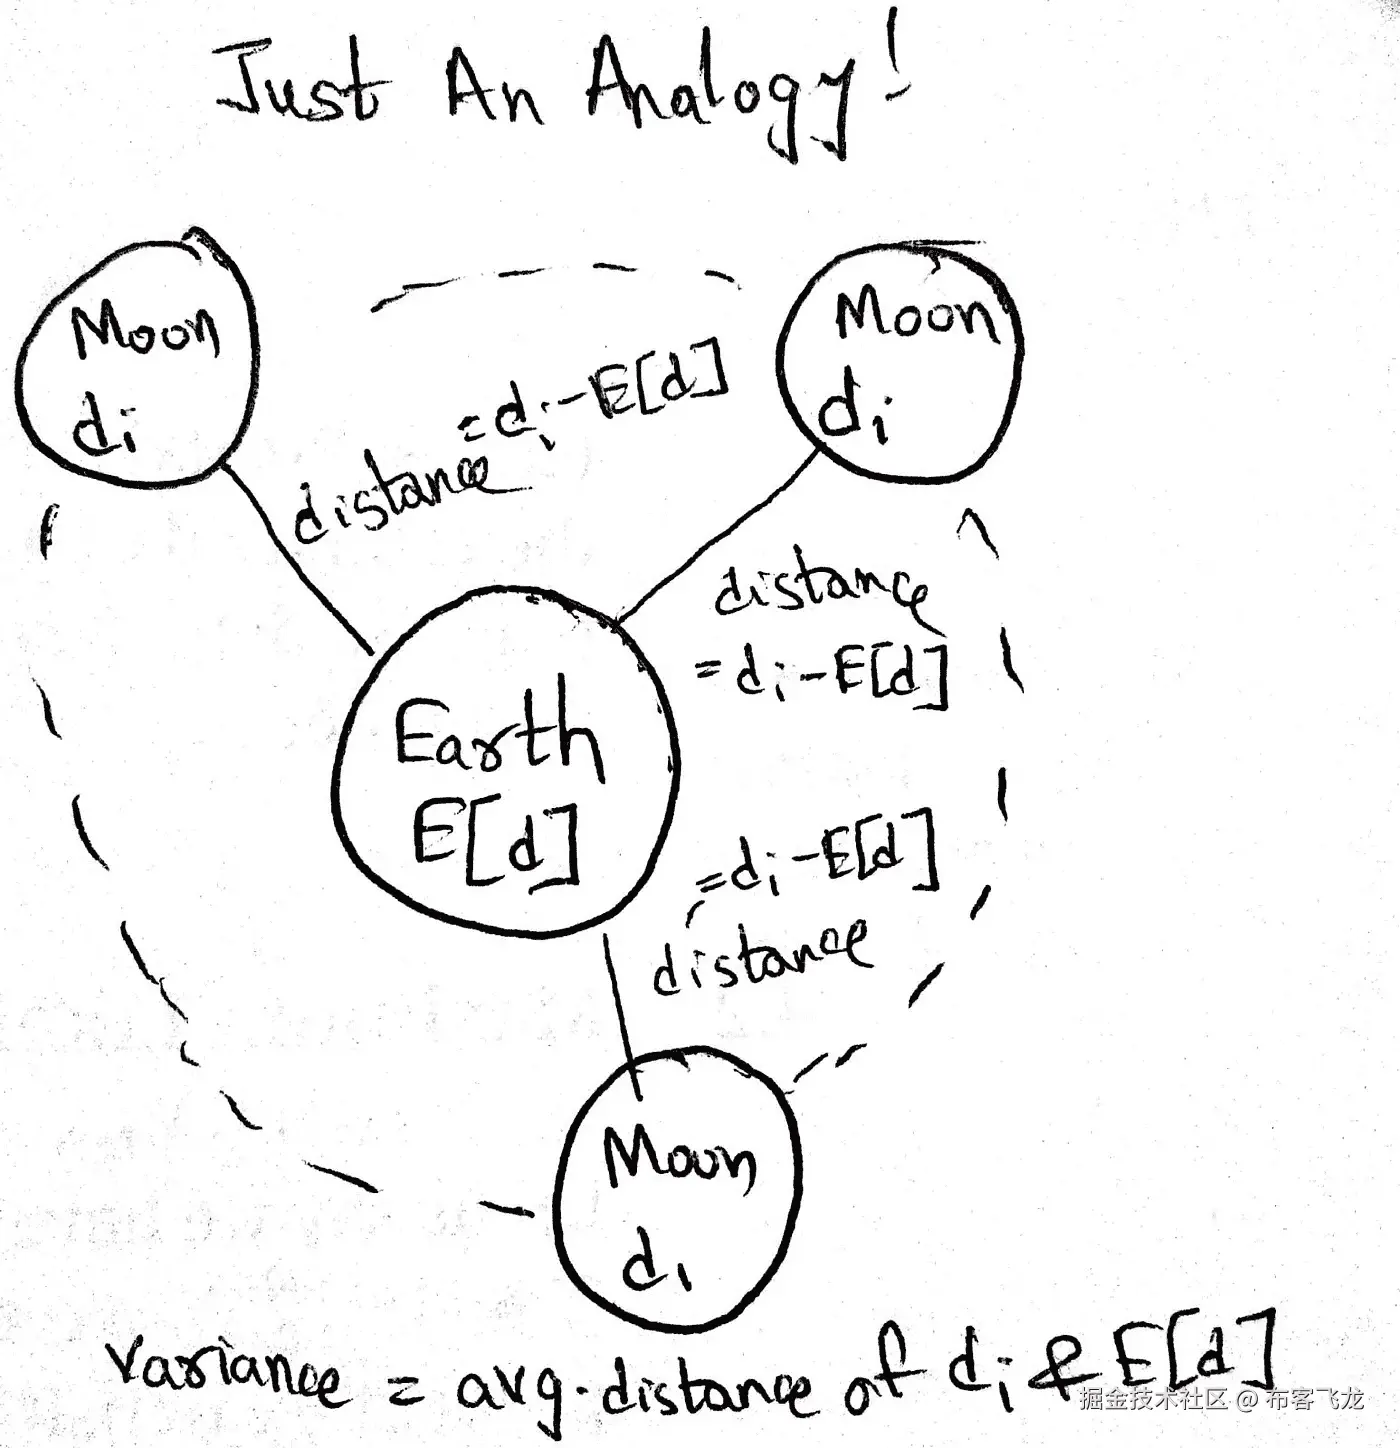 Just An Analogy!
Moon
di
Moon
di
= di - E[d]
distance
distance
= di - E[d]
Earth
E[d]
= di - E[d]
distance
Moon
di
variance = avg. distance of di & E[d]
掘金技术社区 @ 布客飞龙